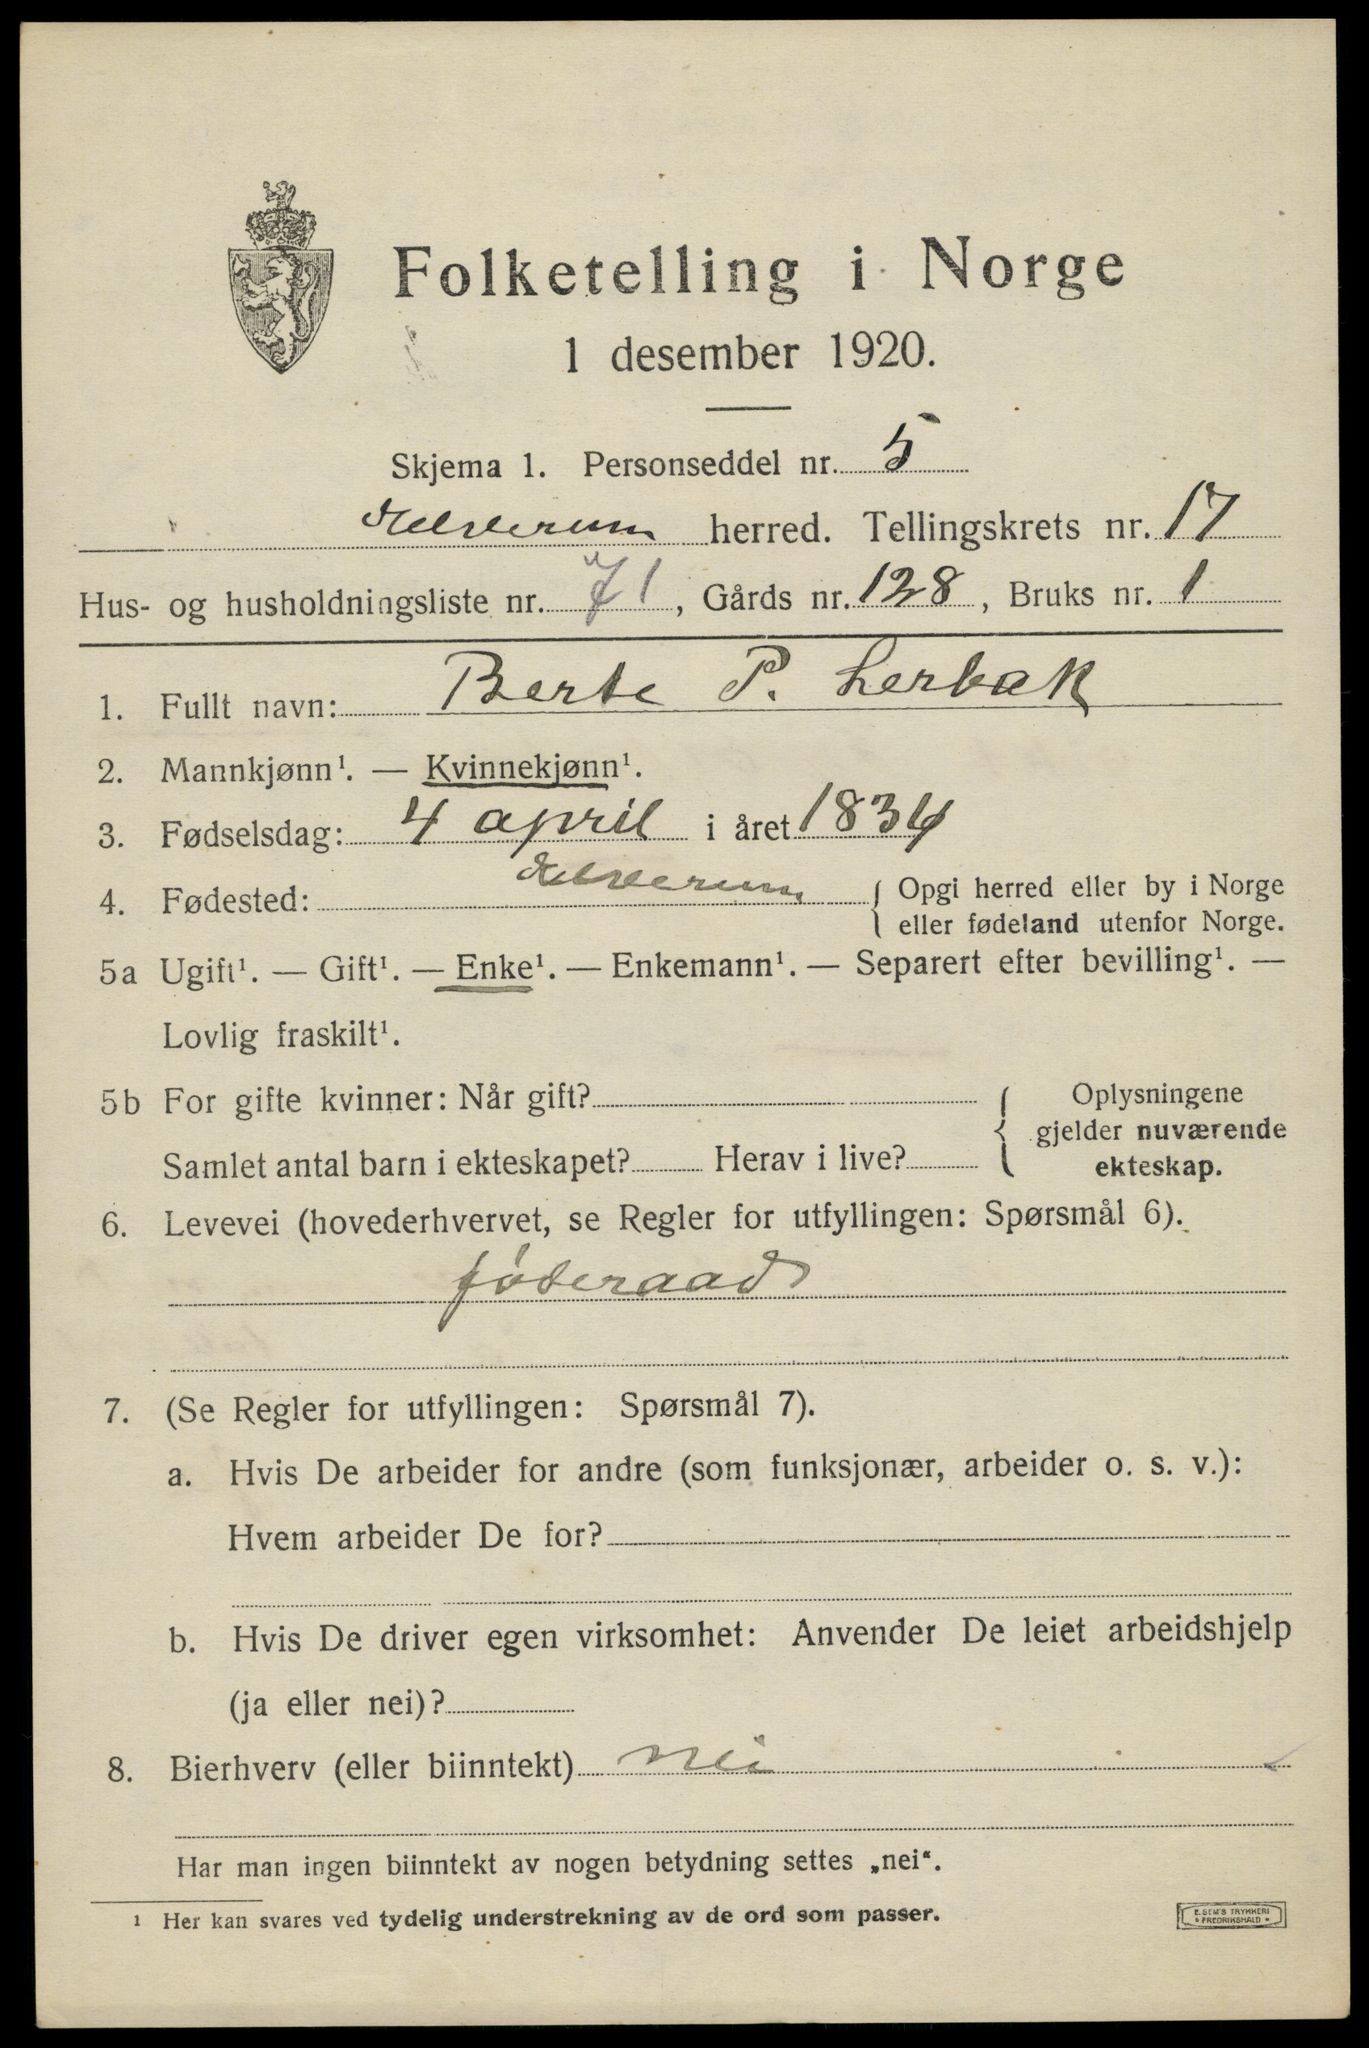 Folketelling i Norge
1 desember 1920.
Skjema 1. Personseddel nr. 5
Elverum herred. Tellingskrets nr. 17
Hus- og husholdningsliste nr. 71, Gårds nr. 128, Bruks nr. 1
1. Fullt navn: Berte P. Lerbak
2. Mannkjønn¹. — Kvinnekjønn¹.
3. Fødselsdag: 4 april i året 1834
4. Fødested: Elverum { Opgi herred eller by i Norge
eller fødeland utenfor Norge.
5a Ugift¹. — Gift¹. — Enke¹. — Enkemann¹. — Separert efter bevilling¹. —
Lovlig fraskilt¹.
5b For gifte kvinner: Når gift? { Oplysningene
gjelder nuværende
Samlet antal barn i ekteskapet? Herav i live? ekteskap.
6. Levevei (hovederhvervet, se Regler for utfyllingen: Spørsmål 6).
føderaad
7. (Se Regler for utfyllingen: Spørsmål 7).
a. Hvis De arbeider for andre (som funksjonær, arbeider o. s. v.):
Hvem arbeider De for?
b. Hvis De driver egen virksomhet: Anvender De leiet arbeidshjelp
(ja eller nei)?
8. Bierhverv (eller biinntekt) nei
Har man ingen biinntekt av nogen betydning settes „nei“.
¹ Her kan svares ved tydelig understrekning av de ord som passer.
E. SEM'S TRYKKERI
FREDRIKSHALD